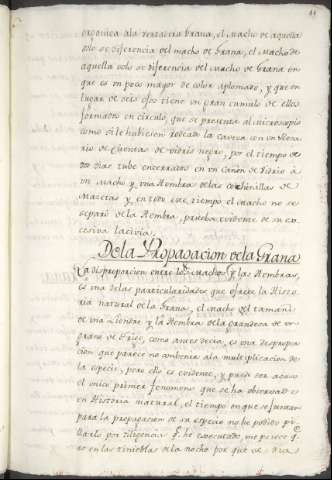 el Macho de aquella
solo se diferencia del macho de Grana, el Macho de
aquella solo se diferencia del Macho de Grana en
que es un poco mayor de color aplomado, y que en
lugar de seis ojos tiene un gran cumulo de ellos
formados en circulo, que se presenta al Microscopio
como si le hubiesen rodeado la cavesa con un Rosa
rio de Cuentas de vidrio negro, por el tiempo de
dos dias tube encerrados en un cañon de Vidrio â
un Macho y una Hembra de las Cochinillas de
Macetas y en todo este tiempo el macho no se
separó de la Hembra, prueba evidente de su ex
cesiva lacivia.
De la Propagacion de la Grana
La disproporcion entre los Machos y las Hembras,
es una de las particularidades que ofrece la Histo
ria natural de la Grana, el macho del tamaño
de una Liendre y la Hembra de la grandesa de un
grano de trigo, como antes decia, es una despropor
cion que parece no combenia a la multiplicacion de
la especie, pero ello es evidente, y puede ser acaso
el unico primer fenomeno que se ha observado
en Historia natural, el tiempo en que se juntan
para la propagacion de su especie no he podido
por diligencia q.e he executado, me parece q.e
es en las tinieblas de la noche por que de